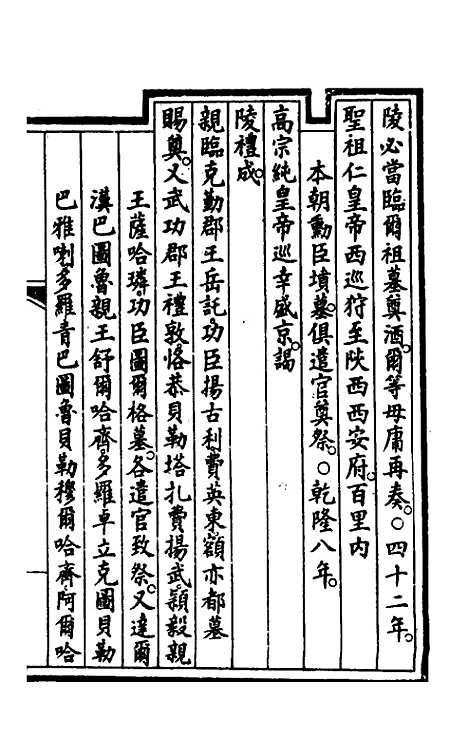 陵必當臨爾祖墓奠酒。爾等毋庸再奏。○四十二年。
聖祖仁皇帝西巡狩至陜西西安府。百里內
本朝勳臣墳墓。俱遣官奠祭。○乾隆八年。
高宗純皇帝巡幸盛京。謁
陵禮成。
親臨克勤郡王岳託功臣揚古利費英東額亦都墓
賜奠。又武功郡王禮敦恪恭貝勒塔扎費揚武穎毅親
王薩哈璘功臣圖爾格墓。各遣官致祭。又達爾
漢巴圖魯親王舒爾哈齊。多羅卓立克圖貝勒
巴雅喇多羅青巴圖魯貝勒穆爾哈齊阿爾哈